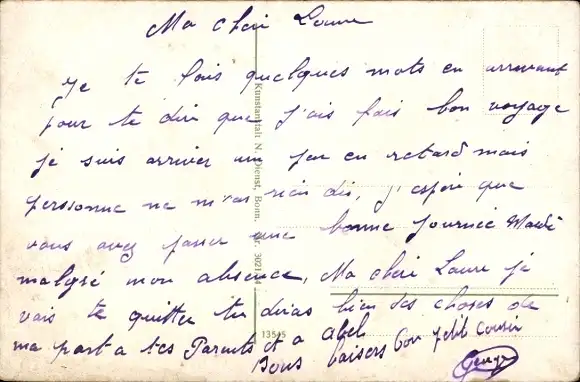 Ma chéri Laure
je te fais quelques mots en arrivant
pour te dire que j'ais fais bon voyage
je suis arriver un peu en retard mais
personne ne m'as rien dis, j'espère que
vous avez passer une bonne journée Mardi
malgré mon absence, Ma chéri Laure je
vais te quitter tu diras bien des choses de
ma part a tes Parents et a abel
Bons baisers Ton petit cousin
Georges
Kunstanstalt N. Dienst, Bonn.
13545